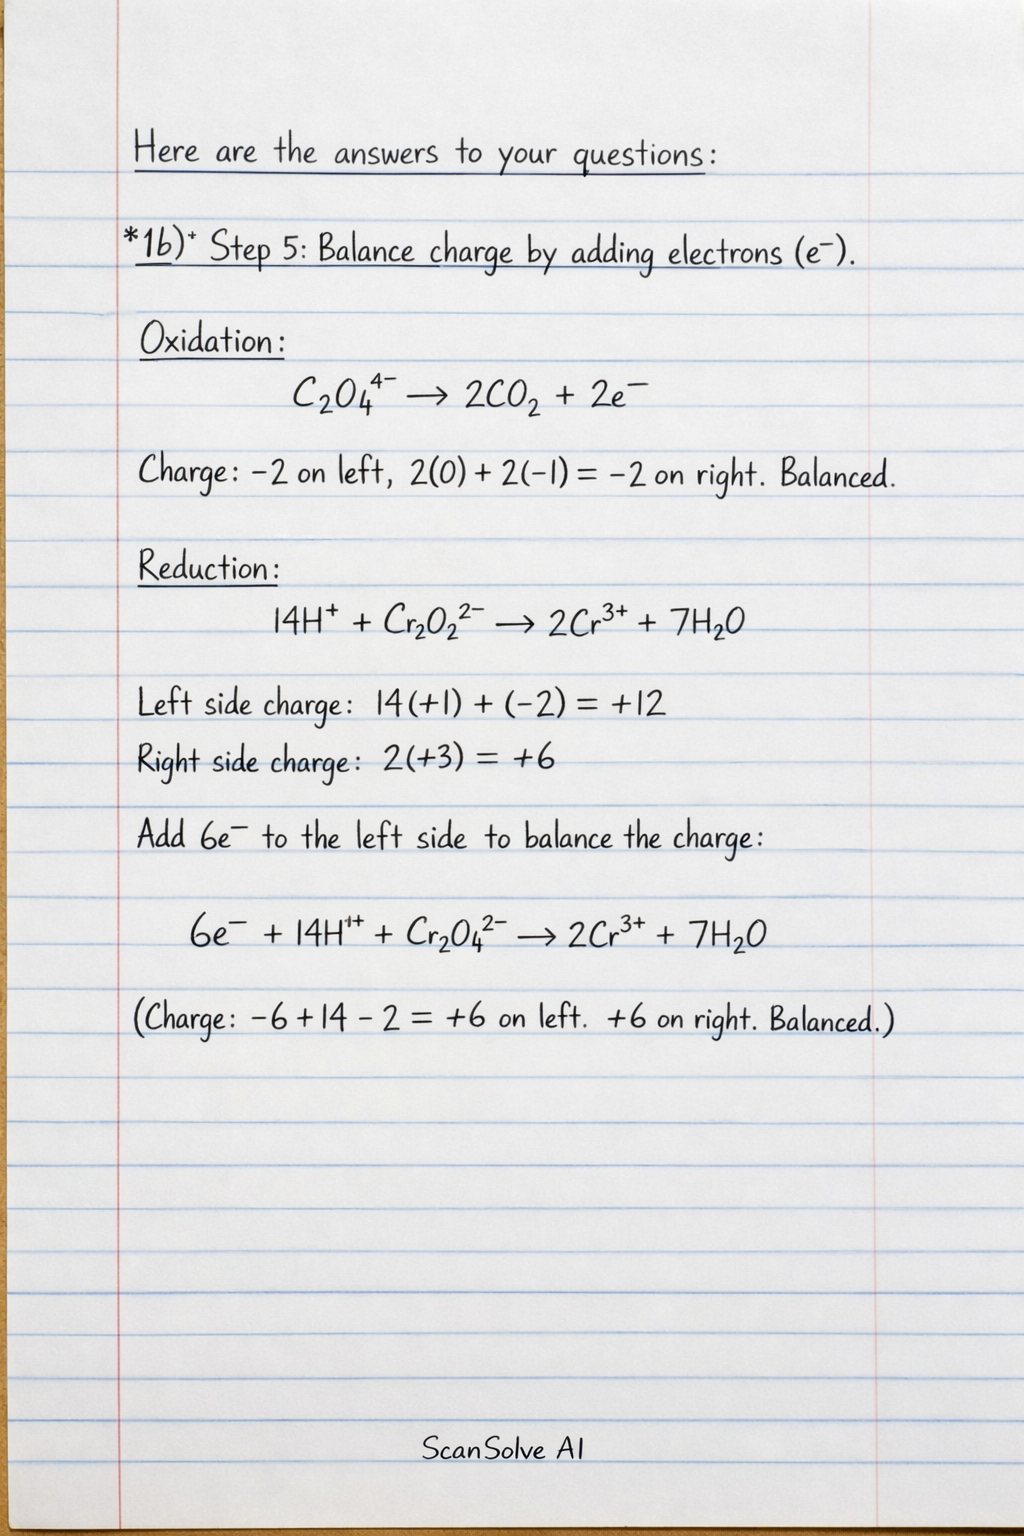 Here are the answers to your questions:
*1b)⁺ Step 5: Balance charge by adding electrons (e⁻).
Oxidation:
C₂O₄⁴⁻ → 2CO₂ + 2e⁻
Charge: −2 on left, 2(0) + 2(−1) = −2 on right. Balanced.
Reduction:
14H⁺ + Cr₂O₂²⁻ → 2Cr³⁺ + 7H₂O
Left side charge: 14(+1) + (−2) = +12
Right side charge: 2(+3) = +6
Add 6e⁻ to the left side to balance the charge:
6e⁻ + 14H¹⁺ + Cr₂O₄²⁻ → 2Cr³⁺ + 7H₂O
(Charge: −6 + 14 − 2 = +6 on left. +6 on right. Balanced.)
ScanSolve AI